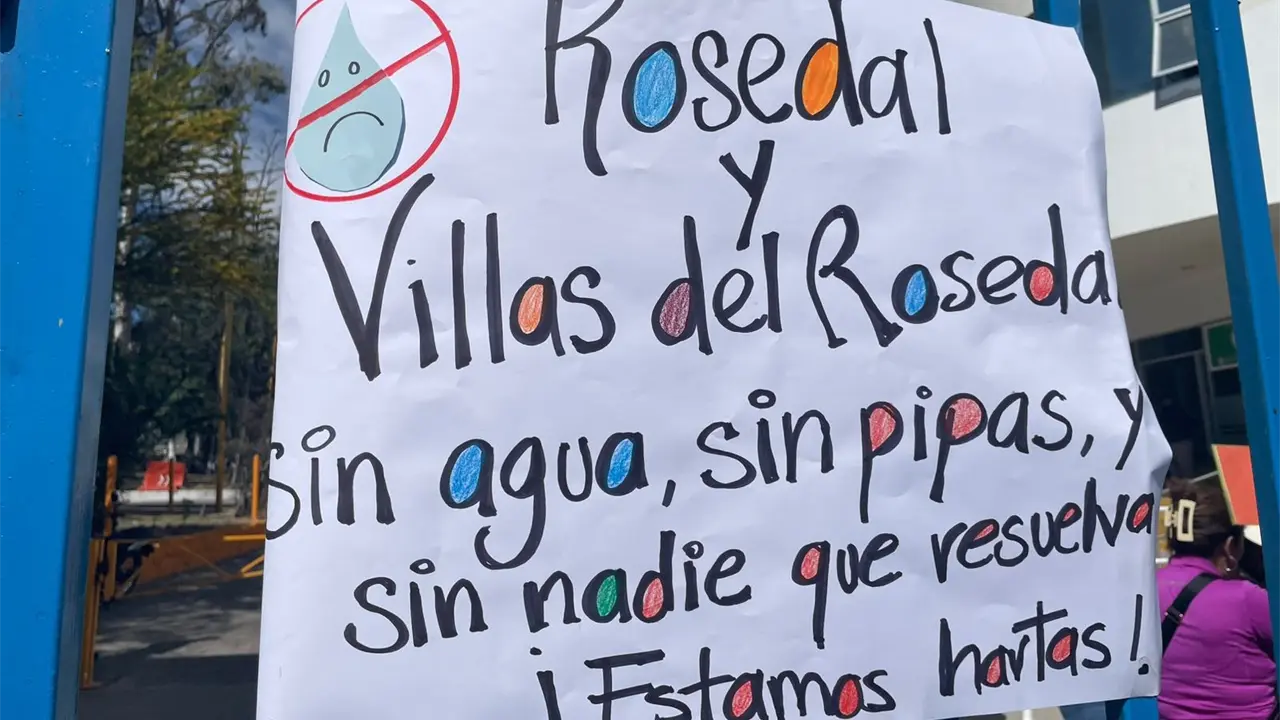 Rosedal
y
Villas del Rosedal
sin agua, sin pipas, y
sin nadie que resuelva
¡Estamos hartas!